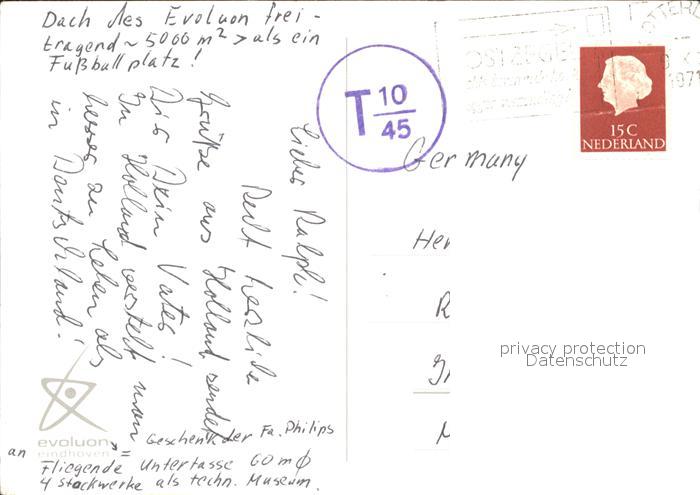 Dach des Evoluon frei-
tragend ~ 5000 m² > als ein
Fußballplatz!
Lieber Ralph!
Recht herzliche
Grüße aus Holland sendet
Dir Dein Vater!
In Holland versteht man
besser zu leben als
in Deutschland!
T 10
45
ROTTERD
1971
15 C
NEDERLAND
Germany
Her
R
M
privacy protection
Datenschutz
evoluon
eindhoven
an = Geschenk der Fa. Philips
Fliegende Untertasse 60 m ϕ
4 Stockwerke als techn. Museum.